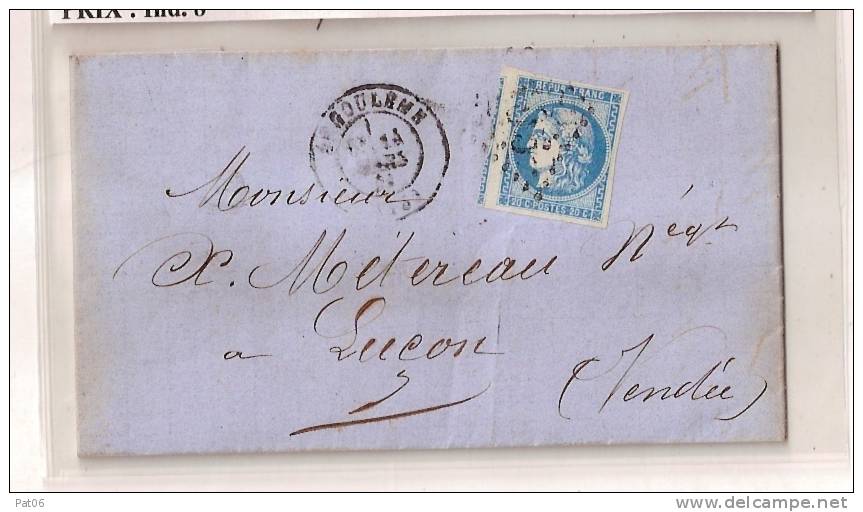 PRIX : Ind. 6
ANGOULÊME
REPUB. FRANC.
20 C POSTES 20 C
Monsieur
X. Métereau Négt
a Luçon
(Vendée)
Pat06
delcampe.net